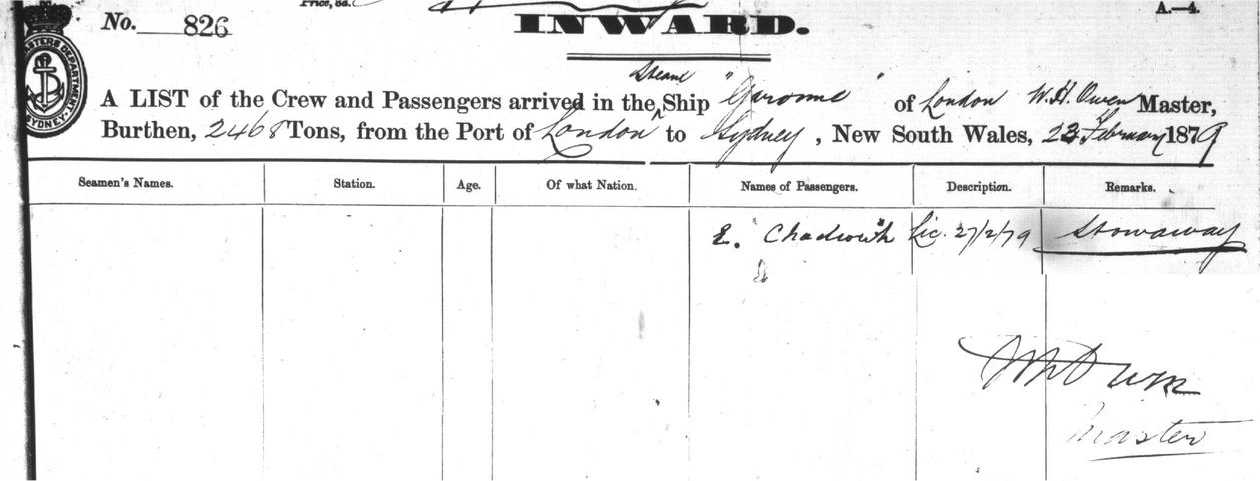 Price, 8d.
No. 826
INWARD.
A.—4.
MASTERS DEPARTMENT SYDNEY.
Steam
A LIST of the Crew and Passengers arrived in the ^ Ship "Garonne" of London W. H. Owen Master,
Burthen, 2468 Tons, from the Port of London to Sydney, New South Wales, 23 February 1879
Seamen's Names. Station. Age. Of what Nation. Names of Passengers. Description. Remarks.
E. Chadwick Lic. 27/2/79 Stowaway
W H Owen
Master